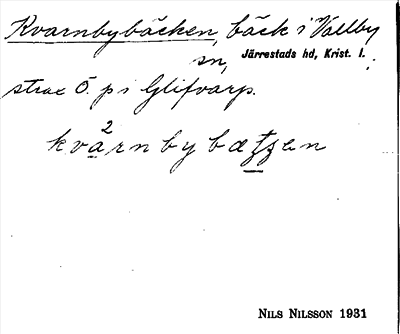 Kvarnbybäcken, bäck i Vallby
sn, Järrestads hd, Krist. l.
strax Ö. p i Glifvarp.
2
kvarnby
NILS NILSSON 1931